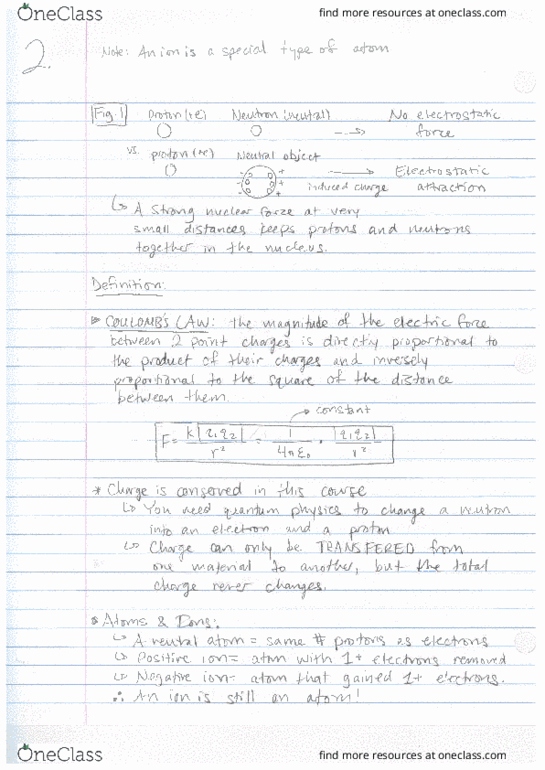 OneClass
find more resources at oneclass.com
2.
Note: An ion is a special type of atom
Fig. 1 Proton (+e) Neutron (neutral) No electrostatic
force
vs. proton (+e) Neutral object Electrostatic
induced charge attraction
A strong nuclear force at very
small distances keeps protons and neutrons
together in the nucleus.
Definition:
COULOMB'S LAW: the magnitude of the electric force
between 2 point charges is directly proportional to
the product of their charges and inversely
proportional to the square of the distance
between them.
constant
F = k|q1q2| / r² = 1 / 4πε0 · |q1q2| / r²
* Charge is conserved in this course
You need quantum physics to change a neutron
into an electron and a proton
Charge can only be TRANSFERED from
one material to another, but the total
charge never changes.
Atoms & Ions:
A neutral atom = same # protons as electrons
Positive ion = atom with 1+ electrons removed
Negative ion = atom that gained 1+ electrons.
∴ An ion is still an atom!
OneClass
find more resources at oneclass.com